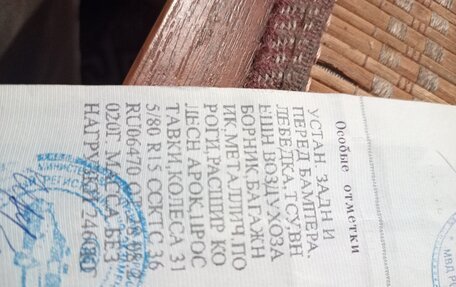 Особые отметки
УСТАН. ЗАДН И
ПЕРЕД БАМПЕРА.
ЛЕБЕДКА.ТСУ,ВН
ЕШН ВОЗДУХОЗА
БОРНИК.БАГАЖН
ИК.МЕТАЛЛИЧ.ПО
РОГИ.РАСШИР КО
ЛЕСН АРОК, ПРОС
ТАВКИ,КОЛЕСА 31
5/80 R15 ССКТС 36
RU06470
020Г. МАССА БЕЗ
НАГРУЗКИ 2460
МВД